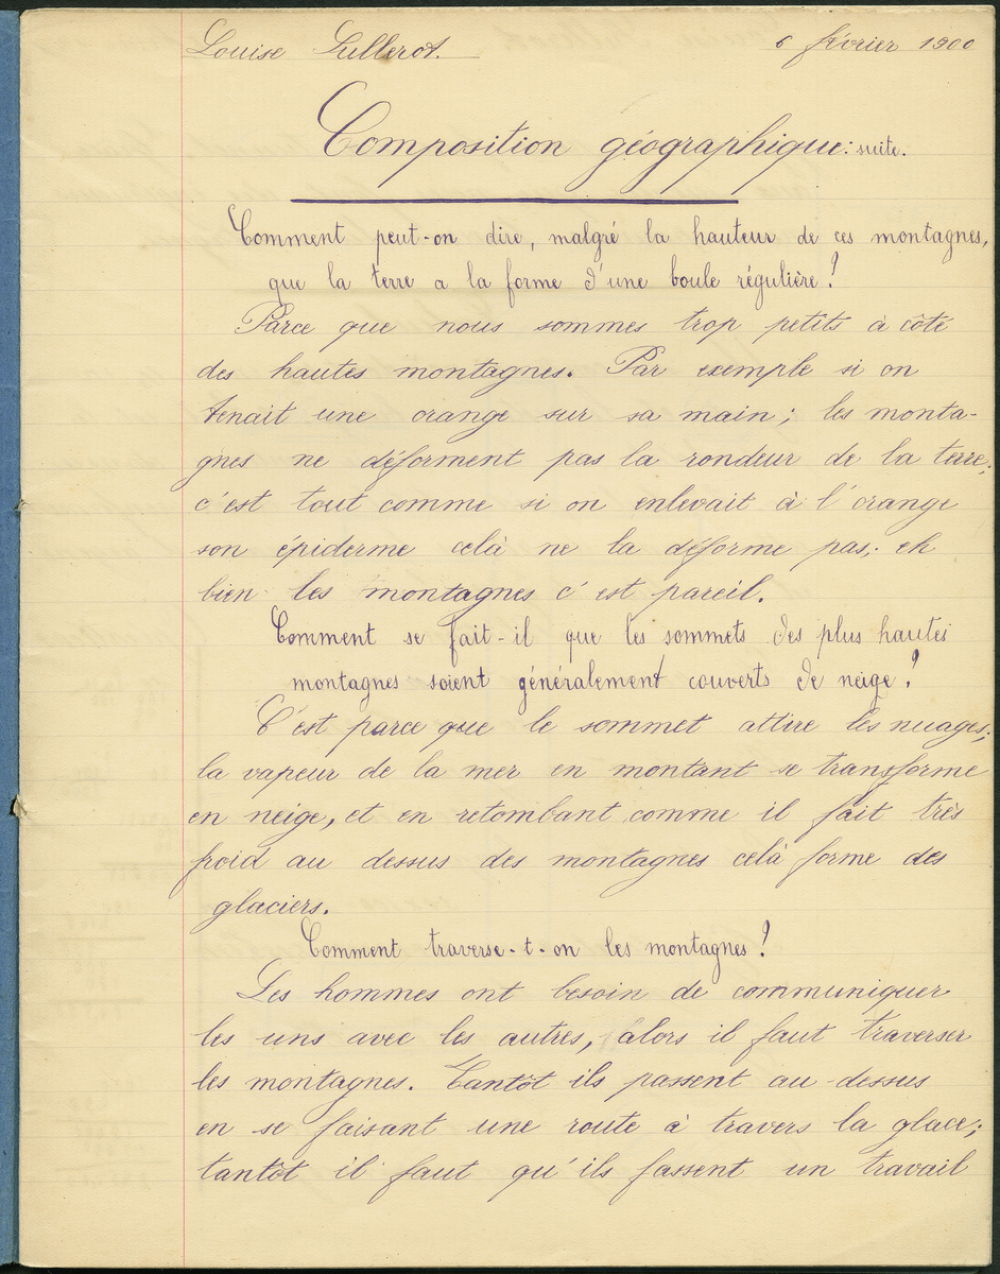 Louise Sullerot. 6 février 1900
Composition géographique: suite.
Comment peut-on dire, malgré la hauteur de ces montagnes,
que la terre a la forme d'une boule régulière?
Parce que nous sommes trop petits à côté
des hautes montagnes. Par exemple si on
tenait une orange sur sa main; les monta-
gnes ne déforment pas la rondeur de la terre;
c'est tout comme si on enlevait à l'orange
son épiderme celà ne la déforme pas; eh
bien les montagnes c'est pareil.
Comment se fait-il que les sommets des plus hautes
montagnes soient généralement couverts de neige?
C'est parce que le sommet attire les nuages;
la vapeur de la mer en montant se transforme
en neige, et en retombant comme il fait très
froid au dessus des montagnes celà forme des
glaciers.
Comment traverse-t-on les montagnes?
Les hommes ont besoin de communiquer
les uns avec les autres, alors il faut traverser
les montagnes. Tantôt ils passent au-dessus
en se faisant une route à travers la glace;
tantôt il faut qu'ils fassent un travail